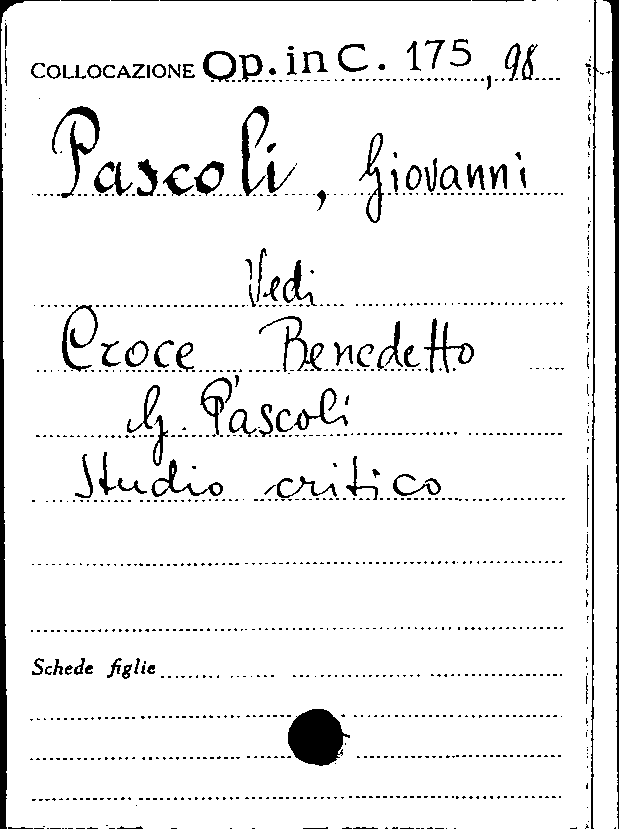 COLLOCAZIONE Op. in C. 175, 98
Pascoli, Giovanni
Vedi
Croce Benedetto
G. Pascoli
Studio critico
Schede figlie